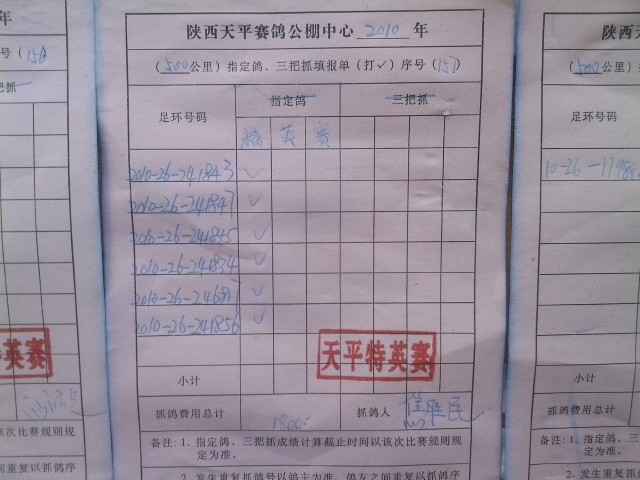 陕西天平赛鸽公棚中心 2010 年
（500公里）指定鸽、三把抓填报单（打✓）序号（157）
足环号码 指定鸽 三把抓
精 英 赛
2010-26-241843 ✓
2010-26-241847 ✓
2010-26-241845 ✓
2010-26-241834 ✓
2010-26-246817 ✓
2010-26-241856 ✓
天平特英赛
小计
抓鸽费用总计 1800. 抓鸽人
备注：1．指定鸽、三把抓成绩计算截止时间以该次比赛规则规
定为准。
2．发生重复抓鸽号以鸽主为准，鸽友之间重复以抓鸽序
年
号（158）
三把抓
英赛
该次比赛规则规
间重复以抓鸽序
陕西天
（500公里）
足环号码
10-26-11988
小计
抓鸽费用总
备注：1．指
定为
2．发